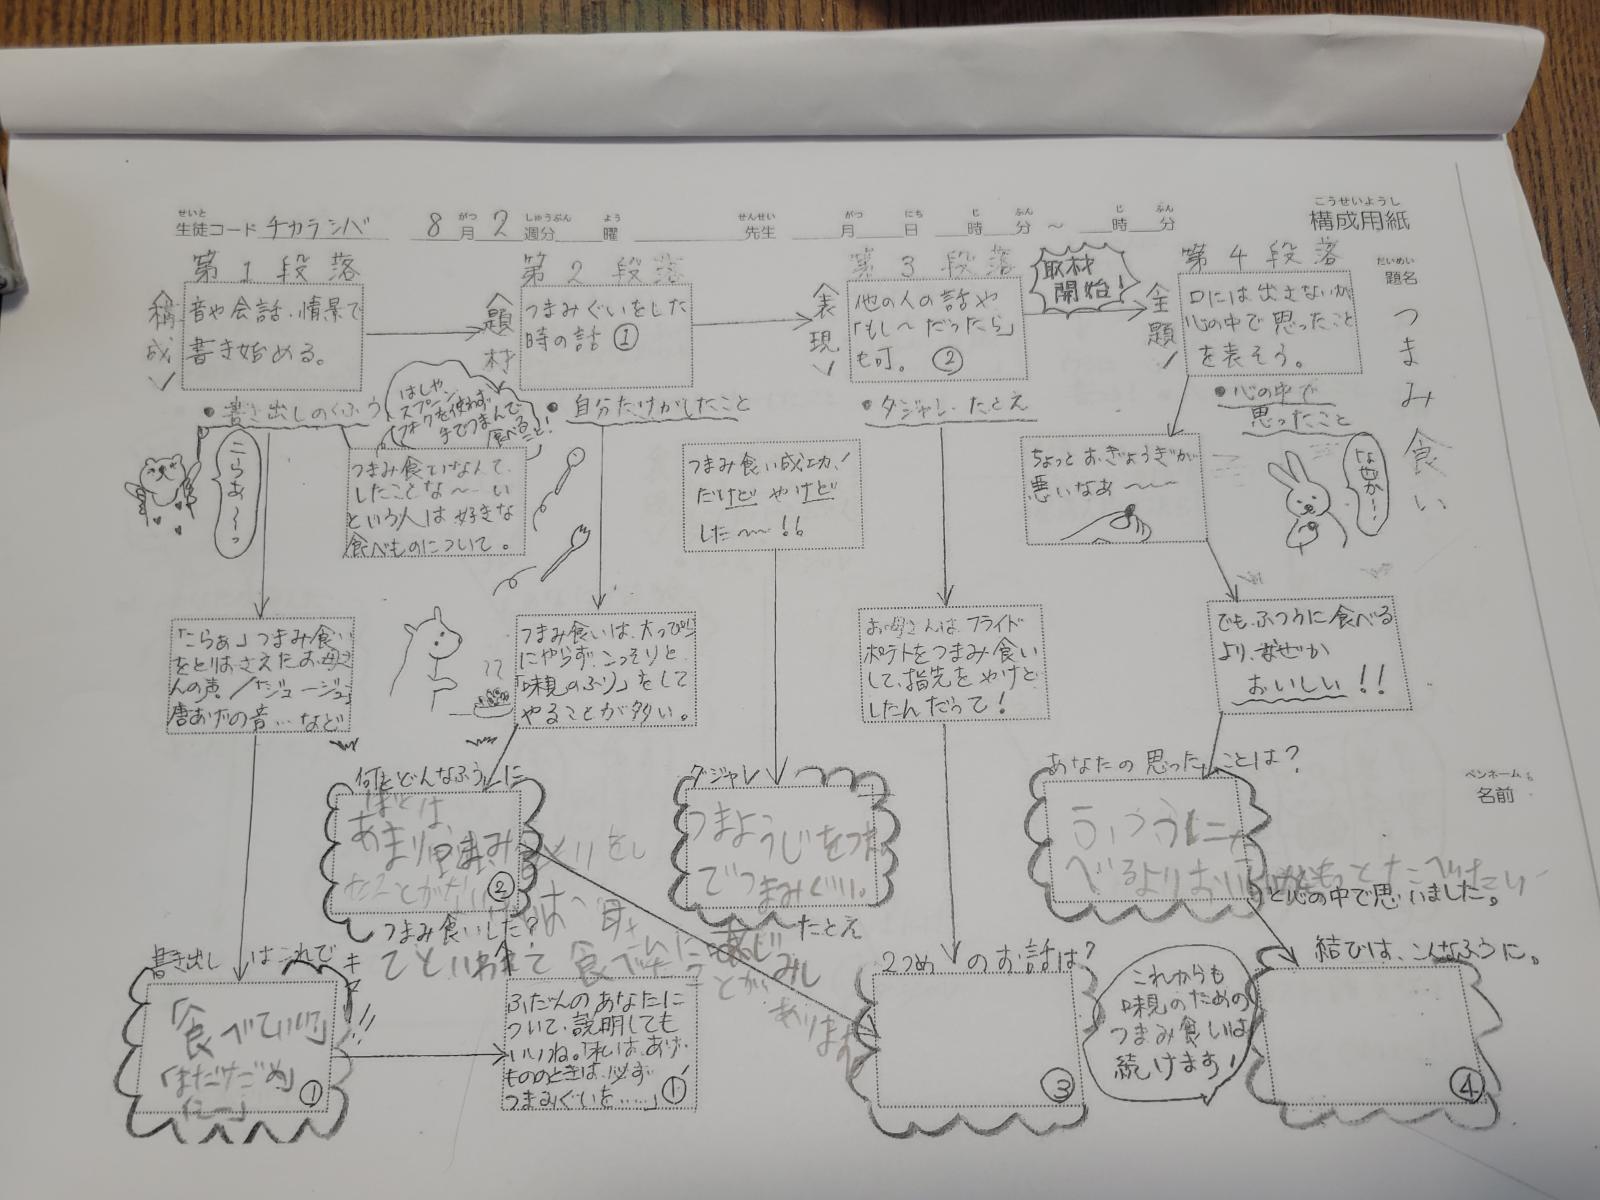 構成用紙
こうせいようし
せいと
生徒コード チカラシバ 8月2週分 曜 先生 月 日 時 分 ～ 時 分
がつ しゅうぶん よう せんせい がつ にち じ ふん じ ふん
だいめい
題名
つまみ食い
ペンネーム
名前
第1段落
構成
音や会話、情景で
書き始める。
・書き出しのくふう
こらあ～っ
はしや、
スプーン、
フォークを使わず、
手でつまんで
食べる
こと!
つまみ食いなんて、
したことな～い
という人は好きな
食べものについて。
「こらぁ」つまみ食い
をとりおさえたお母さ
んの声/「ジュージュー」
唐あげの音…など
書き出しはこれで
キマリ!!
「食べていい?」
「まだけだめ」
①
第2段落
題材
つまみぐいをした
時の話 ①
・自分だけがしたこと
つまみ食いは、大っぴら
にやらず、こっそりと、
「味見のふり」をして
やることが多い。
何をどんなふうに
ぼくは、
あまり
②
つまみ食いした?
てといわれて食べたことが
ふだんのあなたに
ついて、説明しても
いいね。「私は、あげ
もののときは、必ず
つまみぐいを……」①
第3段落
表現
他の人の話や
「もし～だったら」
も可。 ②
・ダジャレ・たとえ
つまみ食い成功!
だけど やけど
した～!!
お母さんは、フライド
ポテトをつまみ食い
して、指先をやけど
したんだって!
ダジャレ
つまようじをつまん
でつまみぐい。
たとえ
2つめのお話は?
③
取材
開始!
第4段落
全題
口には出さないが
心の中で思ったこと
を表そう。
・心の中で
思ったこと
なぜか～
ちょっとおぎょうぎが
悪いなあ～～
でも、ふつうに食べる
より、なぜか
おいしい!!
あなたの思ったことは?
ふつうにた
べるよりおいしいからもっとたべたい
と心の中で思いました。
結びは、こんなふうに。
これからも
味見のための
つまみ食いは
続けます!
④